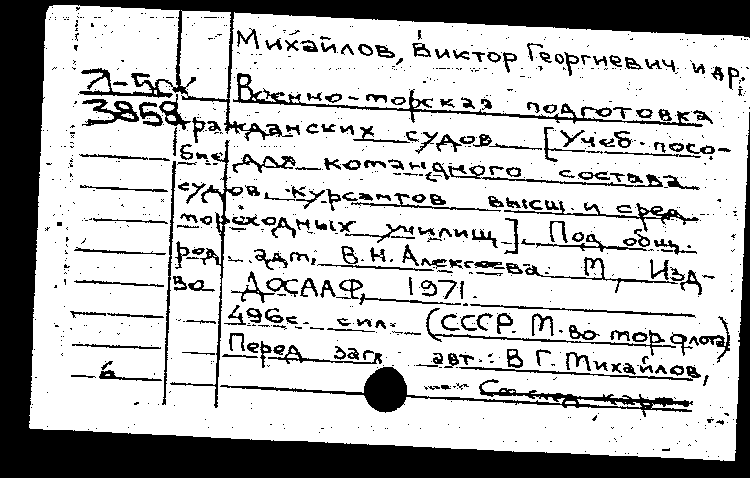 Михайлов, Виктор Георгиевич и др.
Л-5ск
3858
Военно-морская подготовка
гражданских судов. [Учеб. посо-
бие для командного состава
судов, курсантов высш. и сред.
мореходных училищ]. Под общ.
ред. адм. В. Н. Алексеева. М., Изд-
во ДОСААФ, 1971.
496с. с ил. (СССР. М-во мор. флота)
Перед загл. авт.: В. Г. Михайлов,
6
См. след. карт.